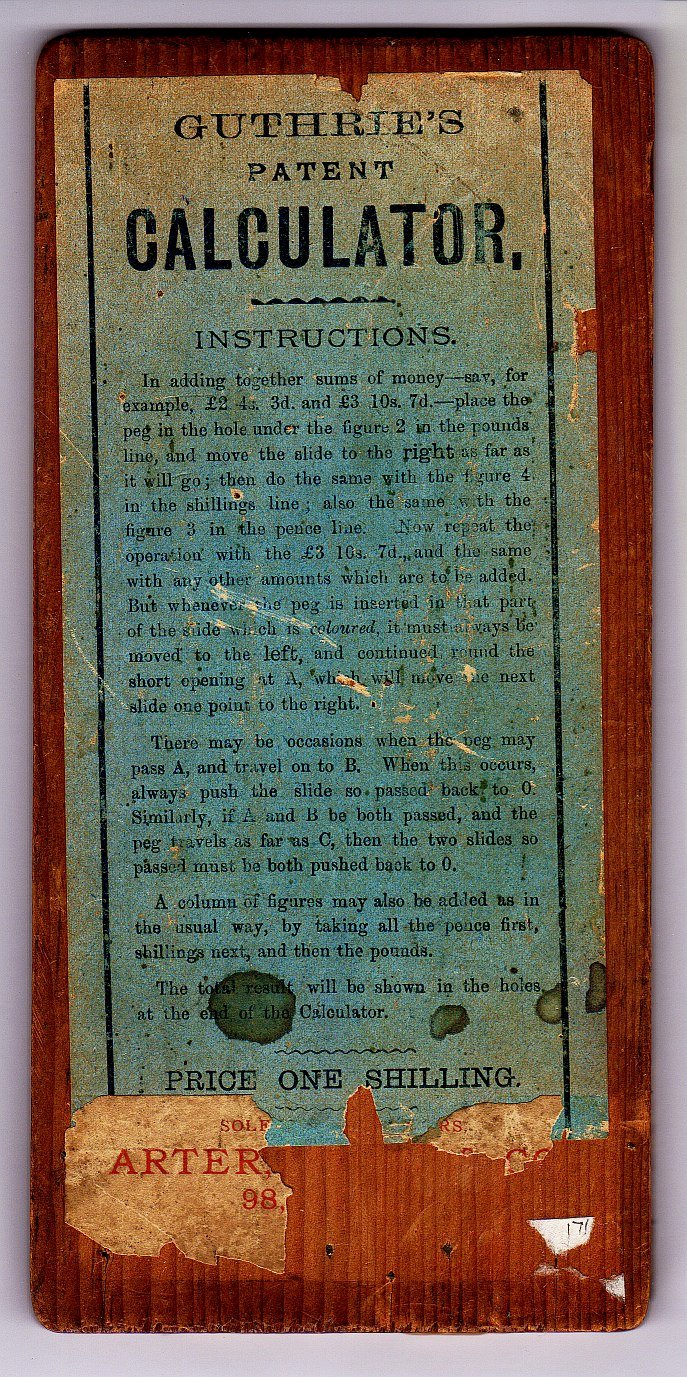 GUTHRIE'S
PATENT
CALCULATOR,
INSTRUCTIONS.
In adding together sums of money—say, for
example, £2 4s. 3d. and £3 10s. 7d.—place the
peg in the hole under the figure 2 in the pounds
line, and move the slide to the right as far as
it will go; then do the same with the figure 4
in the shillings line; also the same with the
figure 3 in the pence line. Now repeat the
operation with the £3 10s. 7d., and the same
with any other amounts which are to be added.
But whenever the peg is inserted in that part
of the slide which is coloured, it must always be
moved to the left, and continued round the
short opening at A, which will move the next
slide one point to the right.
There may be occasions when the peg may
pass A, and travel on to B. When this occurs,
always push the slide so passed back to 0.
Similarly, if A and B be both passed, and the
peg travels as far as C, then the two slides so
passed must be both pushed back to 0.
A column of figures may also be added as in
the usual way, by taking all the pence first,
shillings next, and then the pounds.
The total result will be shown in the holes
at the end of the Calculator.
PRICE ONE SHILLING.
ARTER,
98,
171